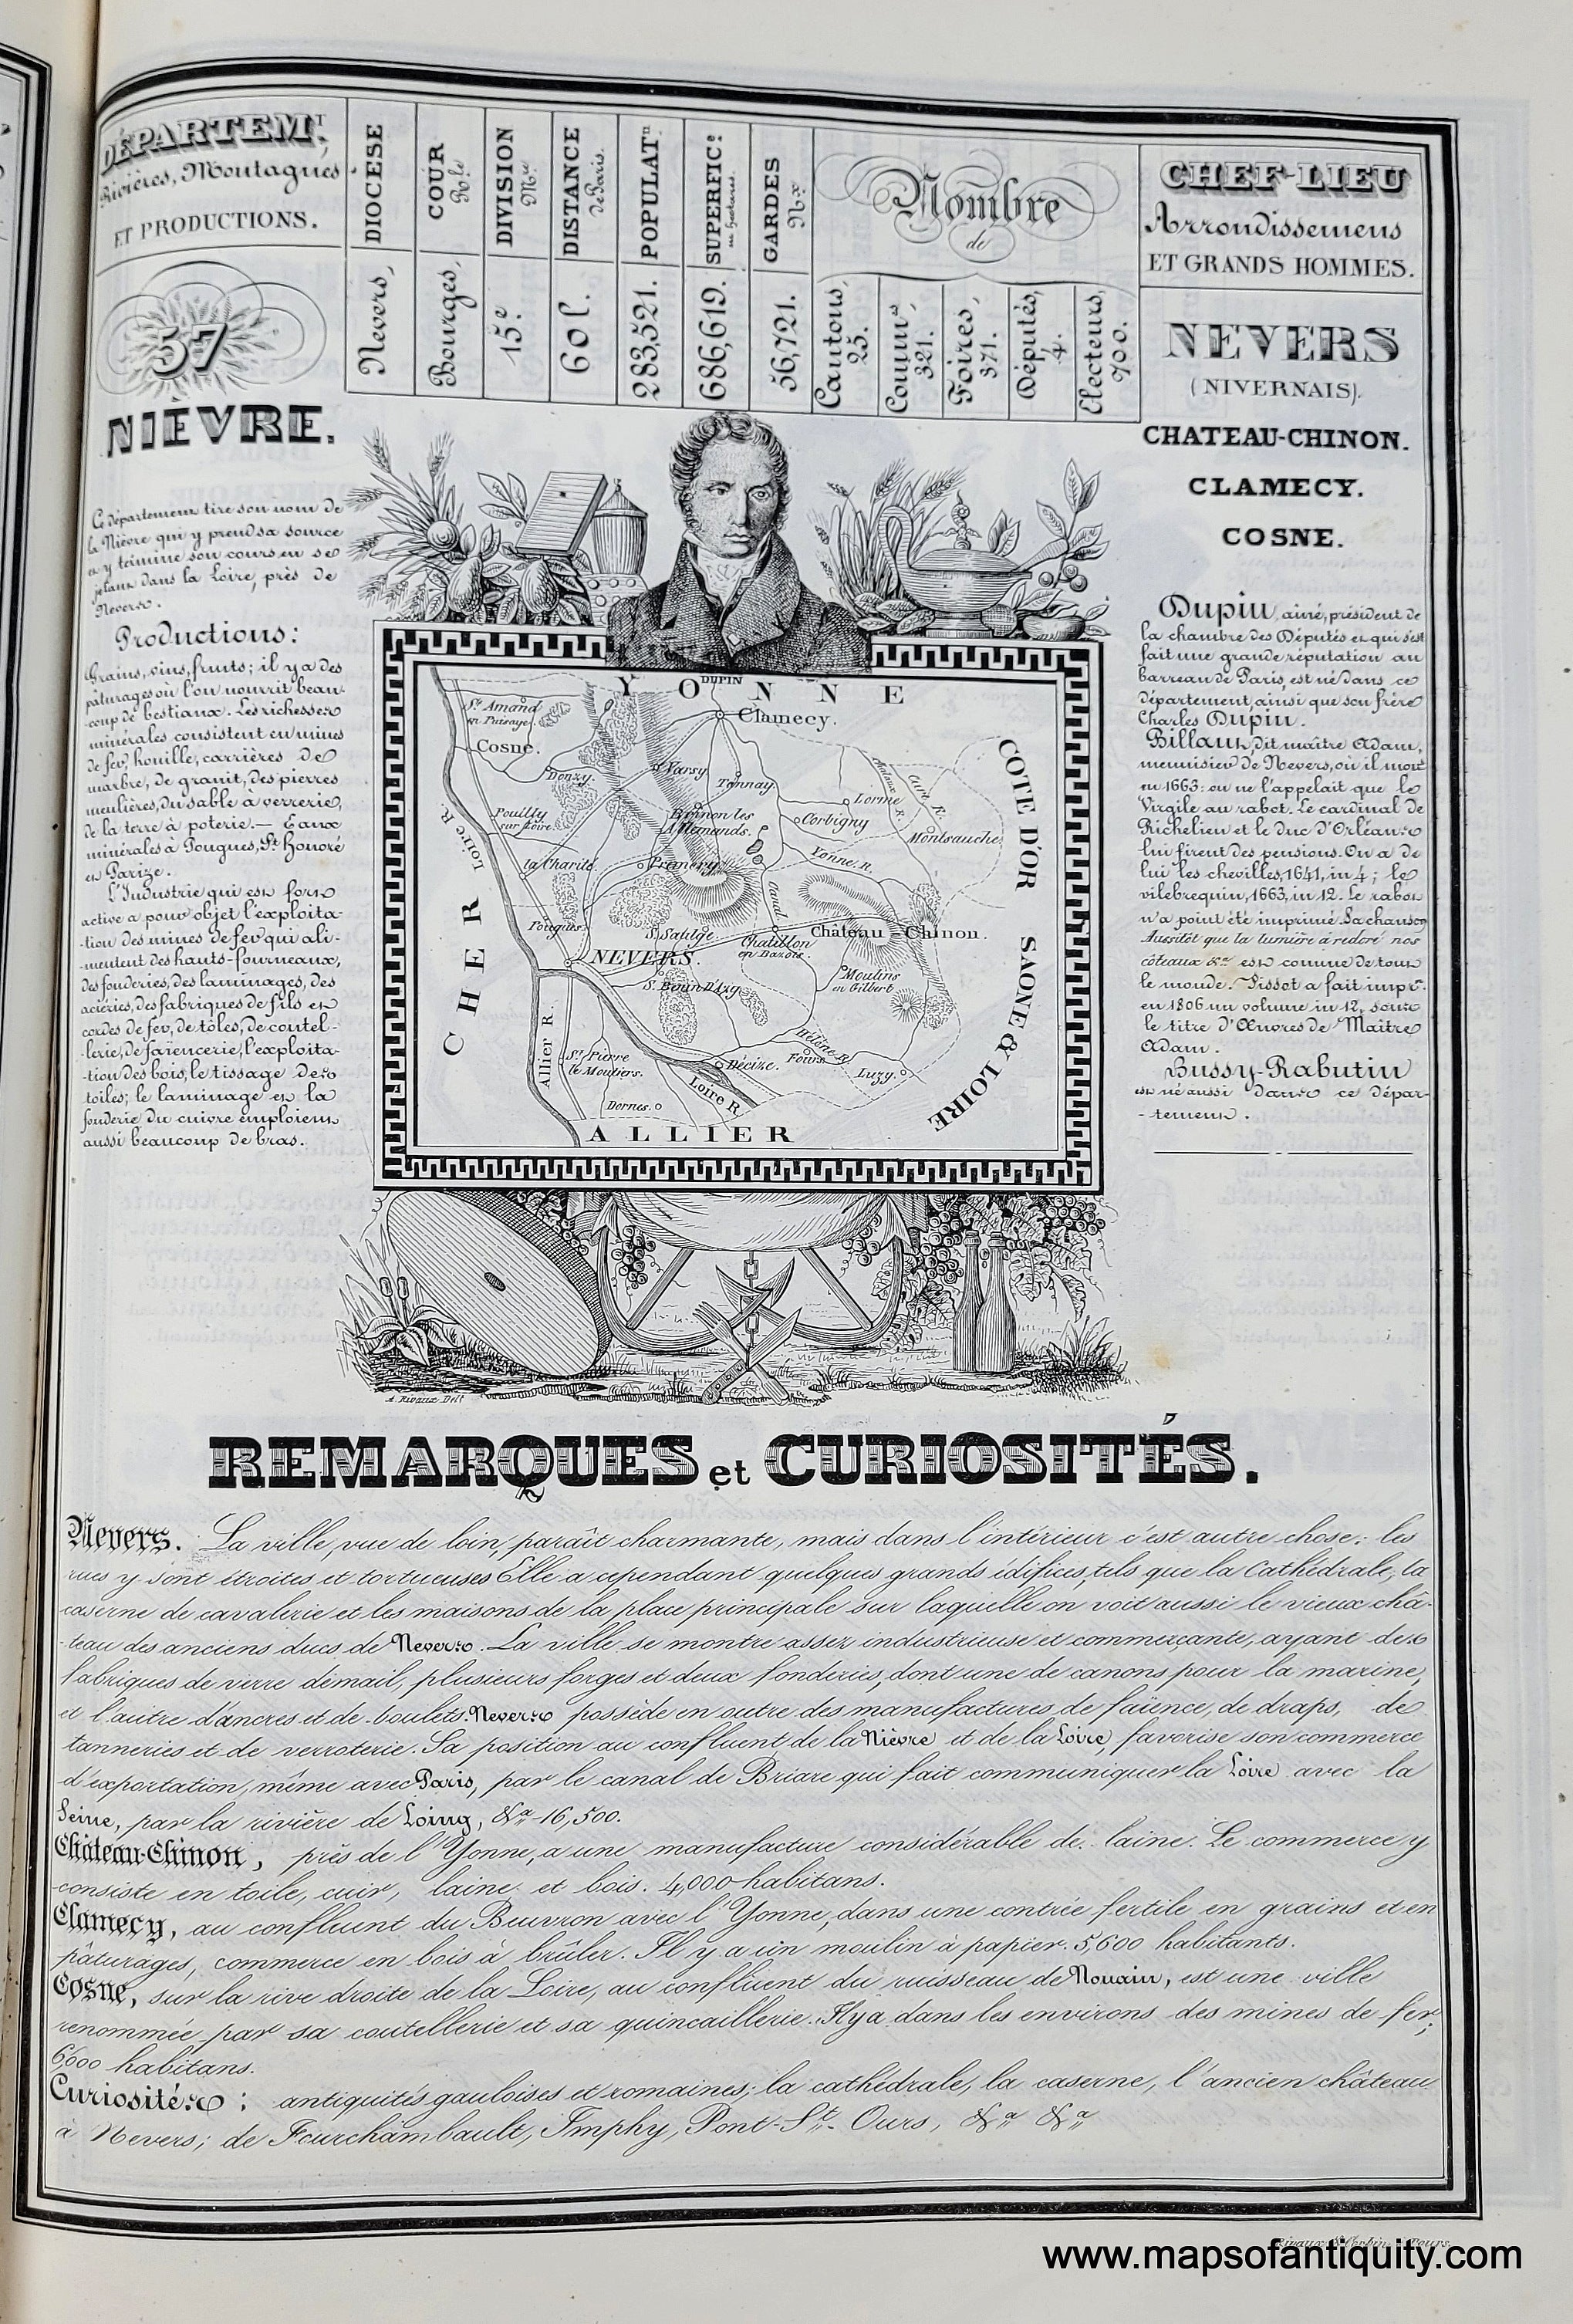 DÉPARTEM.T,
Rivières, Montagnes
ET PRODUCTIONS.
57
NIÈVRE.
DIOCÈSE
Nevers,
COUR
R.le
Bourges,
DIVISION
M.re
15.e
DISTANCE
de Paris.
60 l.
POPULAT.n
283,521.
SUPERFIC.e
en hectares.
686,619.
GARDES
N.x
56,721.
Nombre
de
Cantons,
25.
Commun.s,
321.
Foires,
371.
Députés,
4.
Electeurs,
700.
CHEF-LIEU
Arrondissemens
ET GRANDS HOMMES.
NEVERS
(NIVERNAIS).
CHATEAU-CHINON.
CLAMECY.
COSNE.
Ce département tire son nom de
la Nièvre qui y prend sa source
et y termine son cours en se
jetant dans la Loire, près de
Nevers.
Productions:
Grains, vins, fruits; il y a des
pâturages où l'on nourrit beau-
-coup de bestiaux. Les richesses
minérales consistent en mines
de fer, houille, carrières de
marbre, de granit, des pierres
meulières, du sable à verrerie,
de la terre à poterie.— Eaux
minérales à Pougues, St. Honoré
et Parize.
L'Industrie qui est fort
active a pour objet l'exploita-
-tion des mines de fer qui ali-
-mentent des hauts-fourneaux,
des fonderies, des laminages, des
aciéries, des fabriques de fils et
cordes de fer, de tôles, de coutel-
-lerie, de faïencerie, l'exploita-
-tion des bois, le tissage des
toiles; le laminage et la
fonderie du cuivre emploient
aussi beaucoup de bras.
DUPIN
YONNE
St. Amand
en Puisaye.
Clamecy.
Cosne.
Donzy.
Varsy
Tannay
Lorme
Cure R.
COTE D'OR
Pouilly
sur Loire.
Brinon les
Allemands.
Corbigny
Montsauche
Loire R.
la Charité
Prémery
Yonne. R.
Canal
CHER
Pougues
S. Saulge
Chatillon
en Bazois.
Château Chinon.
NEVERS.
S. Benin D'Azy
Moulins
en Gilbert
SAONE & LOIRE
Allier R.
St. Pierre
le Moutiers.
Décize.
Fours
Luzy.
Loire R.
Dornes.
ALLIER
Dupin, ainé, président de
la chambre des Députés et qui s'est
fait une grande réputation au
barreau de Paris, est né dans ce
département, ainsi que son frère
Charles Dupin.
Billaut, dit maître Adam,
menuisier de Nevers, où il mout
en 1663: on ne l'appelait que le
Virgile au rabot. Le cardinal de
Richelieu et le duc d'Orléans
lui firent des pensions. On a de
lui les chevilles, 1641, in 4; le
vilebrequin, 1663, in 12. Le rabot
n'a point été imprimé. La chanson
Aussitôt que la lumière à redoré nos
côteaux &.a est connue de tout
le monde. Pissot a fait impr.
en 1806 un volume in 12, sous
le titre d'Œuvres de Maître
Adam.
Bussy-Rabutin
est né aussi dans ce dépar-
-tement.
A. Rivaux Delt.
REMARQUES et CURIOSITÉS.
Nevers. La ville, vue de loin, paraît charmante, mais dans l'intérieur c'est autre chose: les
rues y sont étroites et tortueuses Elle a cependant quelques grands édifices, tels que la Cathédrale, la
caserne de cavalerie et les maisons de la place principale sur laquelle on voit aussi le vieux châ-
-teau des anciens ducs de Nevers. La ville se montre assez industrieuse et commerçante, ayant des
fabriques de verre d'émail, plusieurs forges et deux fonderies, dont une de canons pour la marine,
et l'autre d'ancres et de boulets. Nevers possède en outre des manufactures de faïence, de draps, de
tanneries et de verroterie. Sa position au confluent de la Nièvre et de la Loire, favorise son commerce
d'exportation, même avec Paris, par le canal de Briare qui fait communiquer la Loire avec la
Seine, par la rivière de Loing, &.a - 16,500.
Château-Chinon, près de l'Yonne, a une manufacture considérable de laine. Le commerce y
consiste en toile, cuir, laine et bois. 4,000 habitans.
Clamecy, au confluent du Beuvron avec l'Yonne, dans une contrée fertile en grains et en
pâturages, commerce en bois à brûler. Il y a un moulin à papier. 5,600 habitants.
Cosne, sur la rive droite de la Loire, au confluent du ruisseau de Nouain, est une ville
renommée par sa coutellerie et sa quincaillerie. Il y a dans les environs des mines de fer;
6,000 habitans.
Curiosités: antiquités gauloises et romaines; la cathédrale, la caserne, l'ancien château
à Nevers; de Fourchambault, Imphy, Pont-St.-Ours, &.a &.a
www.mapsofantiquity.com